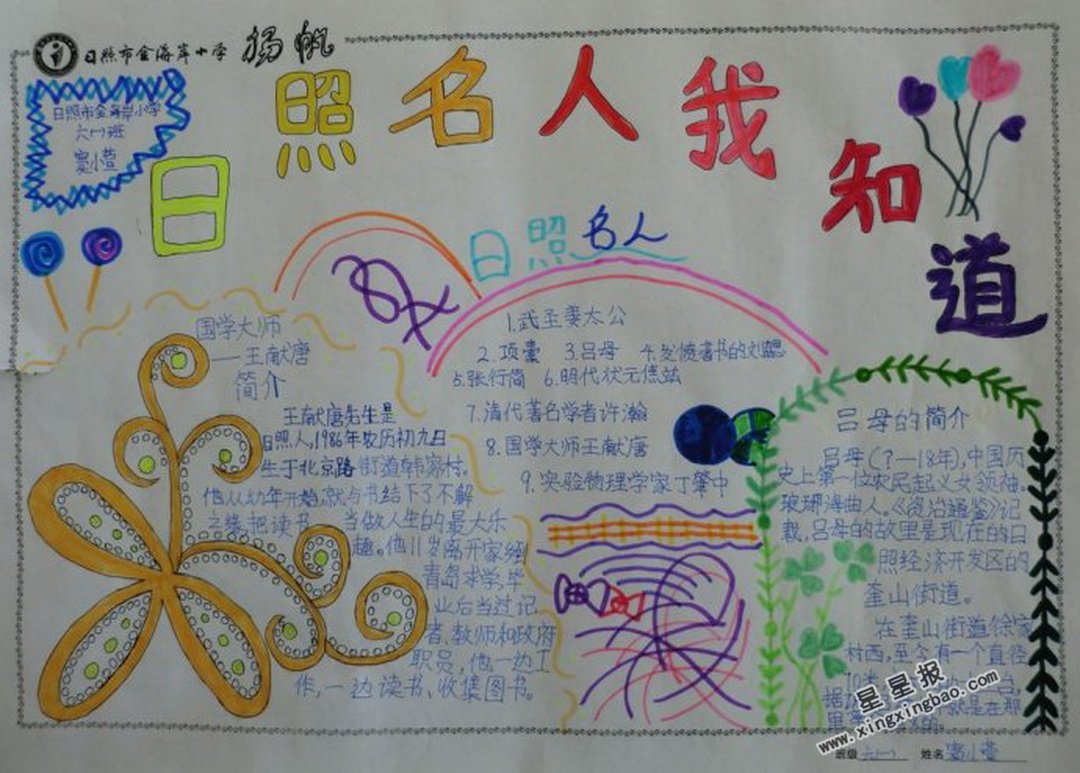 日照市金海岸小学 扬帆
日照市金海岸小学
六(一)班
窦小萱
日照名人我知道
日照名人
国学大师
——王献唐
简介
王献唐先生是
日照人,1986年农历初九日
生于北京路街道韩家村。
他从幼年开始,就与书结下了不解
之缘,把读书 当做人生的最大乐
趣。他11岁离开家独
青岛求学,毕
业后当过记
者、教师和政府
职员,他一边工
作,一边读书、收集图书。
1.武圣姜太公
2.项橐 3.吕母 4.发愤著书的刘勰
5.张行简 6.明代状元焦竑
7.清代著名学者许瀚
8.国学大师王献唐
9.实验物理学家丁肇中
吕母的简介
吕母(?—18年),中国历
史上第一位农民起义女领袖。
琅琊海曲人。《资治通鉴》记
载,吕母的故里是现在的日
照经济开发区的
奎山街道。
在奎山街道徐家
村西,至今有一个直径
10米
据
里
星星报
www.xingxingbao.com
班级 六(一) 姓名 窦小萱